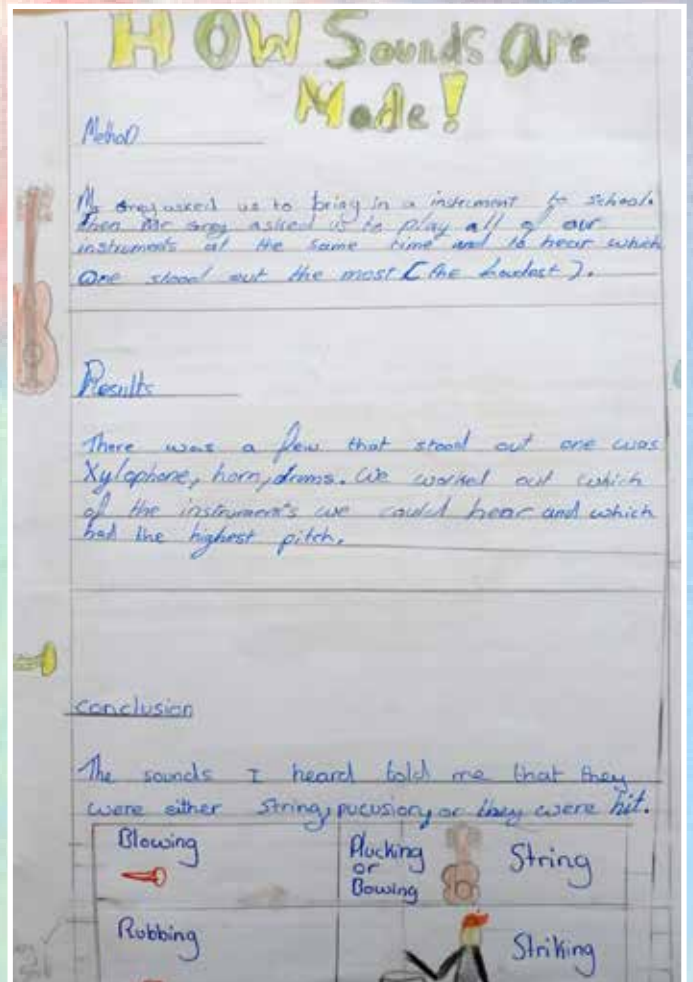 HOW Sounds Are
Made!
Method
Mr Grey asked us to bring in a instrument to school.
then Mr Grey asked us to play all of our
instruments at the same time and to hear which
one stood out the most (the loudest).
Results
There was a few that stood out one was
Xylophone, horn, drums. We worked out which
of the instrument's we could hear and which
had the highest pitch.
conclusion
The sounds I heard told me that they
were either string, pucusiory or they were hit.
Blowing
Plucking
or
Bowing
String
Rubbing
Striking